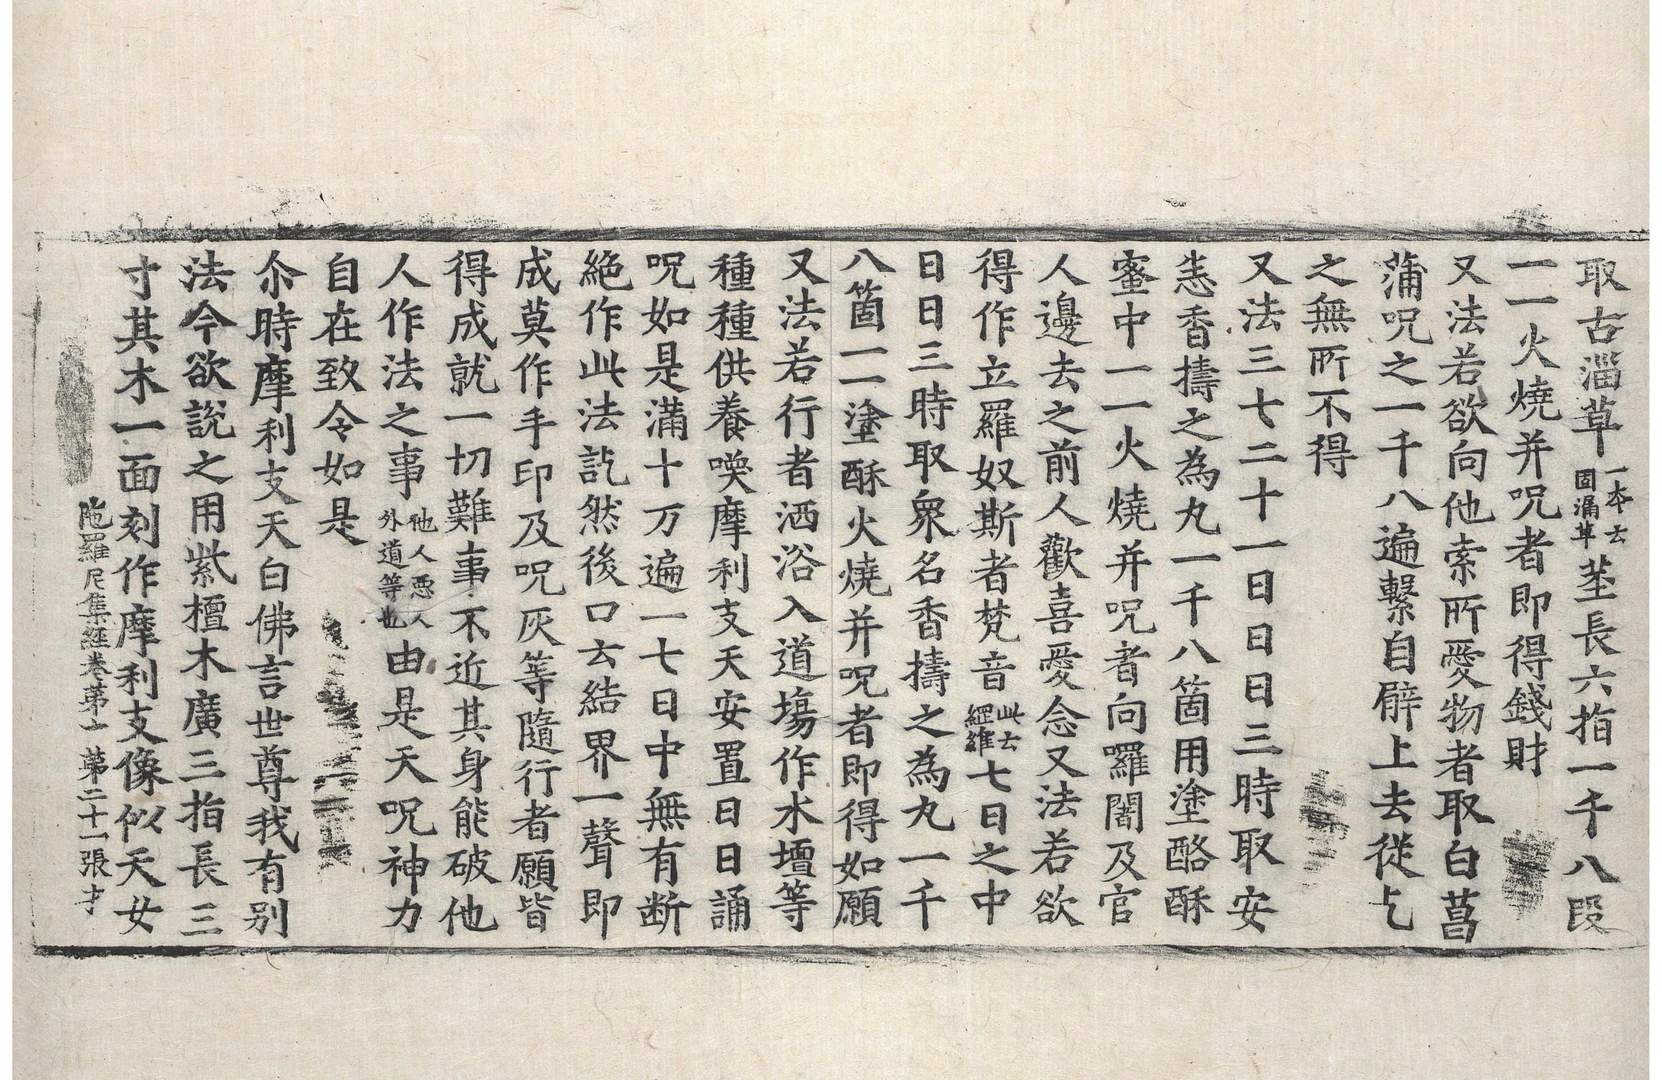 取古淄草一本云固漏草莖長六指一千八段
一一火燒并呪者即得錢財
又法若欲向他索所愛物者取白菖
蒲呪之一千八遍繫自臂上去從乞
之無所不得
又法三七二十一日日日三時取安
悉香擣之為丸一千八箇用塗酪酥
蜜中一一火燒并呪者向囉羅闍及官
人邊去之前人歡喜愛念又法若欲
得作立羅奴斯者梵音此云羅七日之中
日日三時取衆名香擣之為丸一千
八箇一一塗酥火燒并呪者即得如願
又法若行者洒浴入道場作水壇等
種種供養喚摩利支天安置日日誦
呪如是滿十万遍一七日中無有断
絶作此法訖然後口云結界一聲即
成莫作手印及呪灰等隨行者願皆
得成就一切難事不近其身能破他
人作法之事他人悪人外道等也由是天呪神力
自在致令如是
尒時摩利支天白佛言世尊我有別
法今欲説之用紫檀木廣三指長三
寸其木一面刻作摩利支像似天女
陁羅尼集經卷第十　第二十一張　才